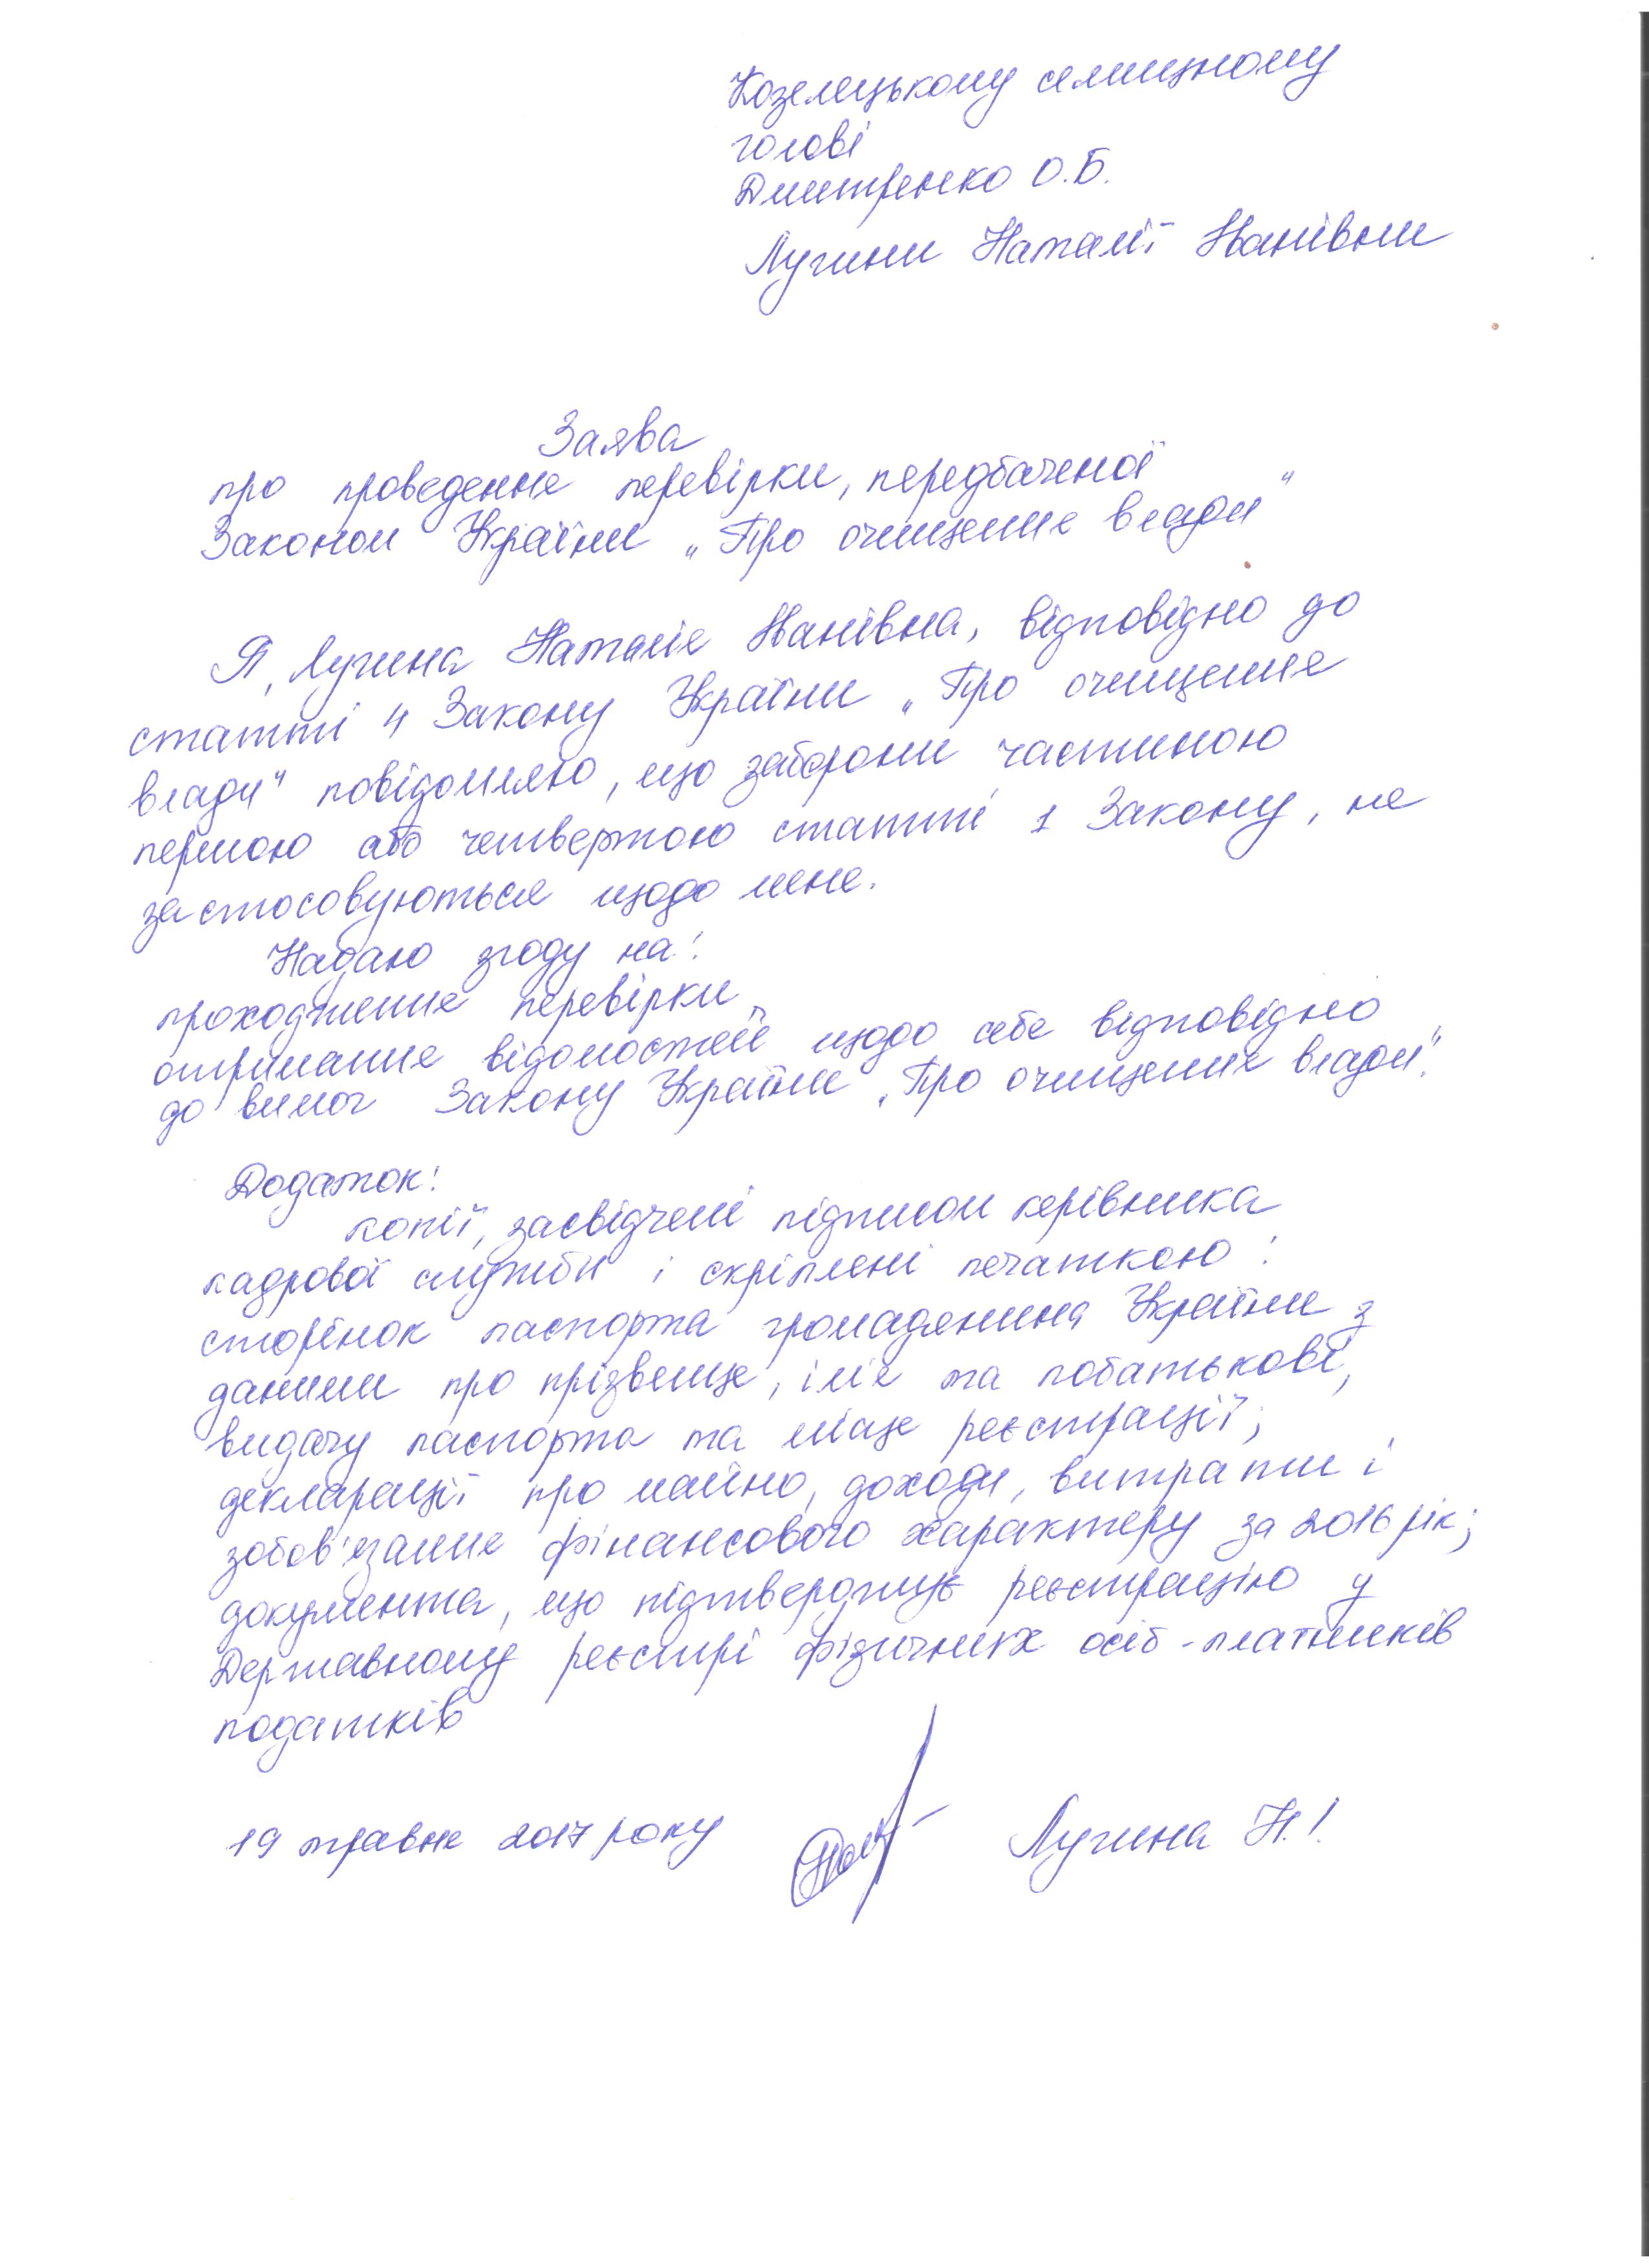 Козелецькому селищному
голові
Дмитренко О.Б.
Лугини Наталії Іванівни
Заява
про проведення перевірки, передбаченої
Законом України „Про очищення влади"
Я, Лугина Наталія Іванівна, відповідно до
статті 4 Закону України „Про очищення
влади" повідомляю, що заборони частиною
першою або четвертою статті 1 Закону, не
застосовуються щодо мене.
Надаю згоду на:
проходження перевірки
отримання відомостей щодо себе відповідно
до вимог Закону України „Про очищення влади".
Додаток:
копії, засвідчені підписом керівника
кадрової служби і скріплені печаткою:
сторінок паспорта громадянина України з
даними про прізвище, ім'я та побатькові,
видачу паспорта та місце реєстрації;
декларації про майно, доходи, витрати і
зобов'язання фінансового характеру за 2016 рік;
документа, що підтверджує реєстрацію у
Державному реєстрі фізичних осіб - платників
податків
19 травня 2017 року Лугина Н.І.